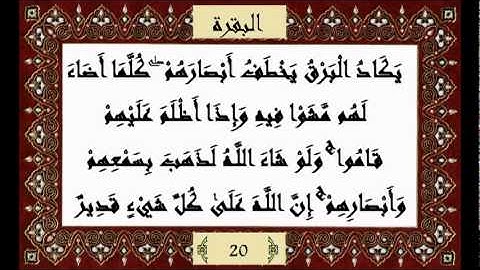 البقرة
يَكَادُ الْبَرْقُ يَخْطَفُ أَبْصَارَهُمْ ۖ كُلَّمَا أَضَاءَ
لَهُم مَّشَوْا فِيهِ وَإِذَا أَظْلَمَ عَلَيْهِمْ
قَامُوا ۚ وَلَوْ شَاءَ اللَّهُ لَذَهَبَ بِسَمْعِهِمْ
وَأَبْصَارِهِمْ ۚ إِنَّ اللَّهَ عَلَىٰ كُلِّ شَيْءٍ قَدِيرٌ
20